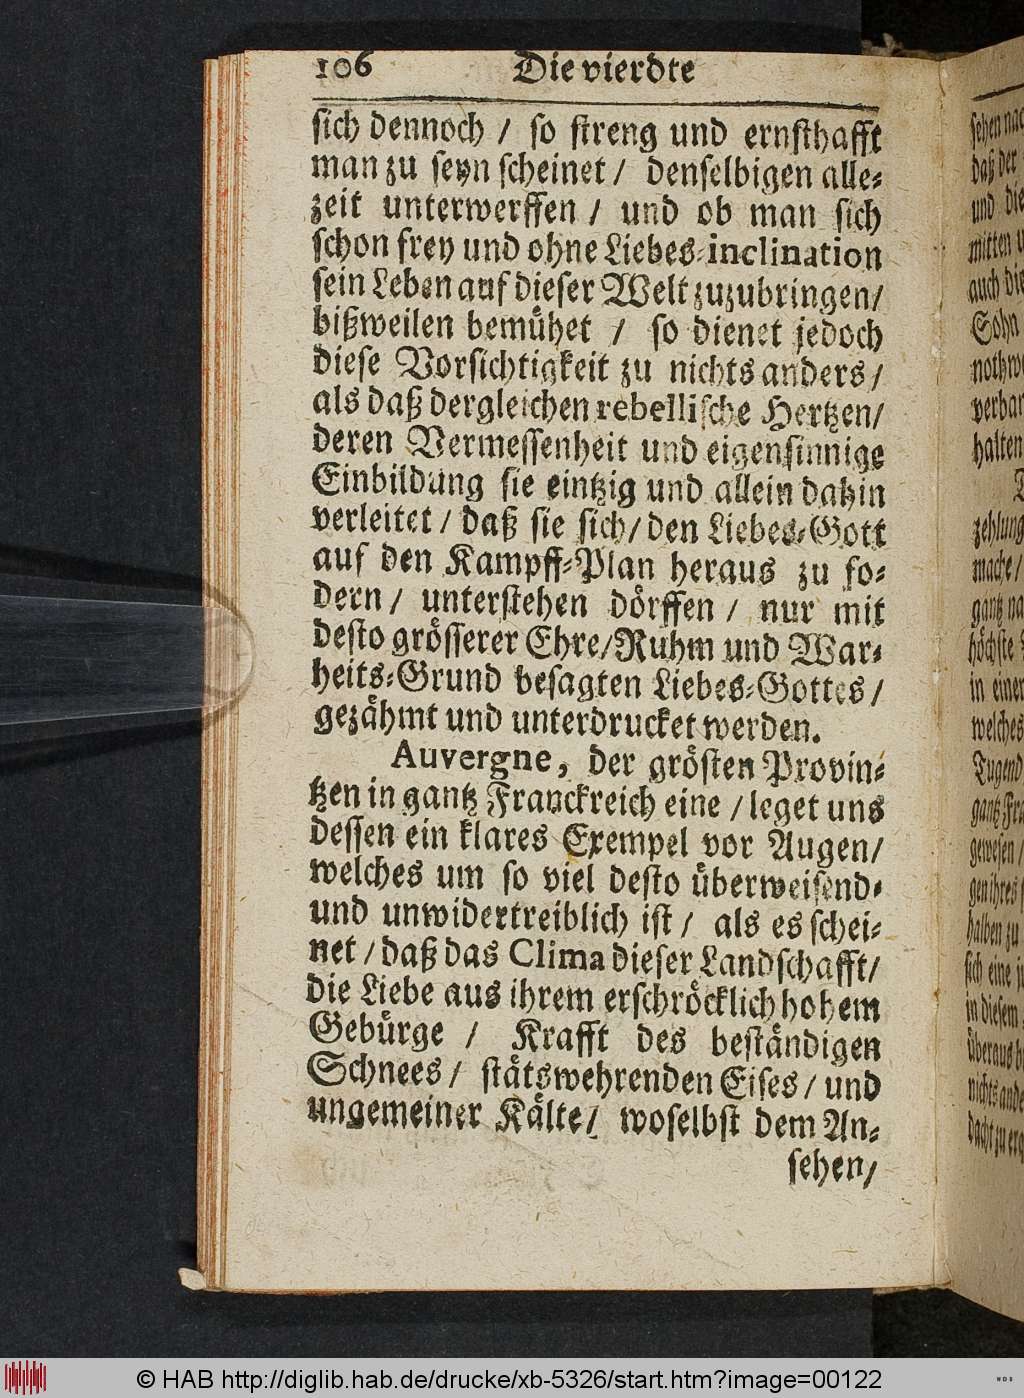 106 Die vierdte
sich dennoch / so streng und ernsthafft
man zu seyn scheinet / denselbigen alle-
zeit unterwerffen / und ob man sich
schon frey und ohne Liebes-inclination
sein Leben auf dieser Welt zuzubringen /
bißweilen bemühet / so dienet jedoch
diese Vorsichtigkeit zu nichts anders /
als daß dergleichen rebellische Hertzen /
deren Vermessenheit und eigensinnige
Einbildung sie eintzig und allein dahin
verleitet / daß sie sich / den Liebes-Gott
auf den Kampff-Plan heraus zu fo-
dern / unterstehen dörffen / nur mit
desto grösserer Ehre / Ruhm und War-
heits-Grund besagten Liebes-Gottes /
gezähmt und unterdrucket werden.
Auvergne, der grösten Provin-
tzen in gantz Franckreich eine / leget uns
dessen ein klares Exempel vor Augen /
welches um so viel desto überweisend-
und unwidertreiblich ist / als es schei-
net / daß das Clima dieser Landschafft /
die Liebe aus ihrem erschröcklich hohem
Gebürge / Krafft des beständigen
Schnees / stätswehrenden Eises / und
ungemeiner Kälte / woselbst dem An-
sehen /
sehen
daß der
und die
mitten
auch die
Sohn
halten
zehlung
mache /
gantz
höchste
in einer
welches
Tugend
gewesen /
halben zu
sich eine
in diesem
© HAB http://diglib.hab.de/drucke/xb-5326/start.htm?image=00122